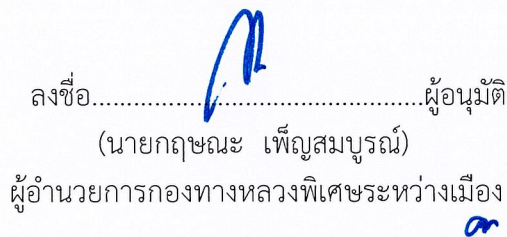 ลงชื่อ................................................ผู้อนุมัติ
(นายกฤษณะ เพ็ญสมบูรณ์)
ผู้อำนวยการกองทางหลวงพิเศษระหว่างเมือง